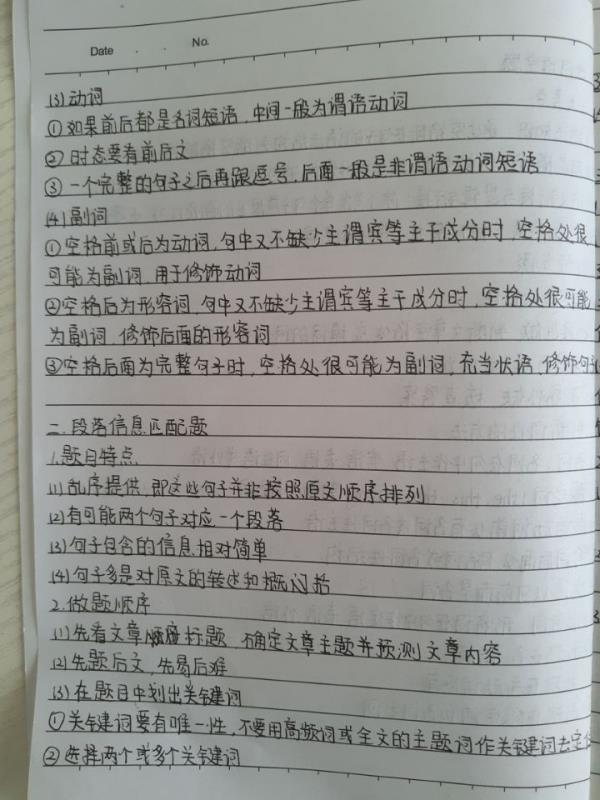 Date . . No.
(3) 动词
① 如果前后都是名词短语，中间一般为谓语动词
② 时态要有前后文
③ 一个完整的句子之后再跟逗号，后面一般是非谓语动词短语
(4) 副词
① 空格前或后为动词，句中又不缺少主谓宾等主干成分时，空格处很
可能为副词，用于修饰动词
② 空格后为形容词，句中又不缺少主谓宾等主干成分时，空格处很可能
为副词，修饰后面的形容词
③ 空格后面为完整句子时，空格处很可能为副词，充当状语，修饰句
二. 段落信息匹配题
1. 题目特点
(1) 乱序提供，即这些句子并非按照原文顺序排列
(2) 有可能两个句子对应一个段落
(3) 句子包含的信息相对简单
(4) 句子多是对原文的转述和概括
2. 做题顺序
(1) 先看文章标题，确定文章主题并预测文章内容
(2) 先题后文，先易后难
(3) 在题目中划出关键词
① 关键词要有唯一性，不要用高频词或全文的主题词作关键词去定
② 选择两个或多个关键词